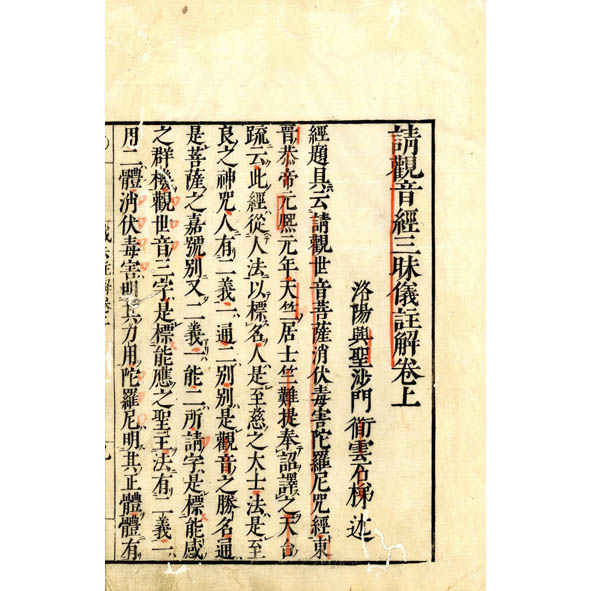 請觀音經三昧儀註解卷上
洛陽興聖沙門衝雲石梯述
經題具云請觀世音菩薩消伏毒害陀羅尼咒經東
晉恭帝元熙元年天竺居士竺難提奉詔譯之天台
疏云此經從人法以標名人是至慈之大士法是至
良之神咒人有二義一通二別別是觀音之勝名通
是菩薩之嘉號別又二義一能二所請字是標能感
之群機觀世音三字是標能應之聖主法有二義一
用二體消伏毒害明其力用陀羅尼明其正體體有